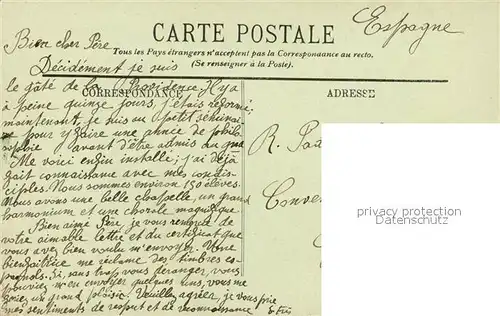 Espagne
CARTE POSTALE
Bien cher Père
Tous les Pays étrangers n'acceptent pas la Correspondance au recto.
(Se renseigner à la Poste).
Décidément je suis
le gâté de la Providence. Il y a
CORRESPONDANCE
ADRESSE
à peine quinze jours, j'étais réformé;
maintenant, je suis au petit séminai-
re pour y faire une année de philo-
sophie avant d'être admis au
Me voici enfin installé; j'ai déjà
fait connaissance avec mes condis-
ciples. Nous sommes environ 150 élèves.
Nous avons une belle chapelle, un grand
harmonium et une chorale magnifique
Bien aimé Père, je vous remercie de
votre aimable lettre et du certificat que
vous avez bien voulu m'envoyer. Une
bienfaitrice me réclame des timbres es-
pagnols. Si, sans trop vous déranger, vous
pouviez m'en envoyer quelques uns, vous me
feriez un grand plaisir. Veuillez agréer, je vous prie
mes sentiments de respect et de reconnaissance
R.
Conve
privacy protection
Datenschutz